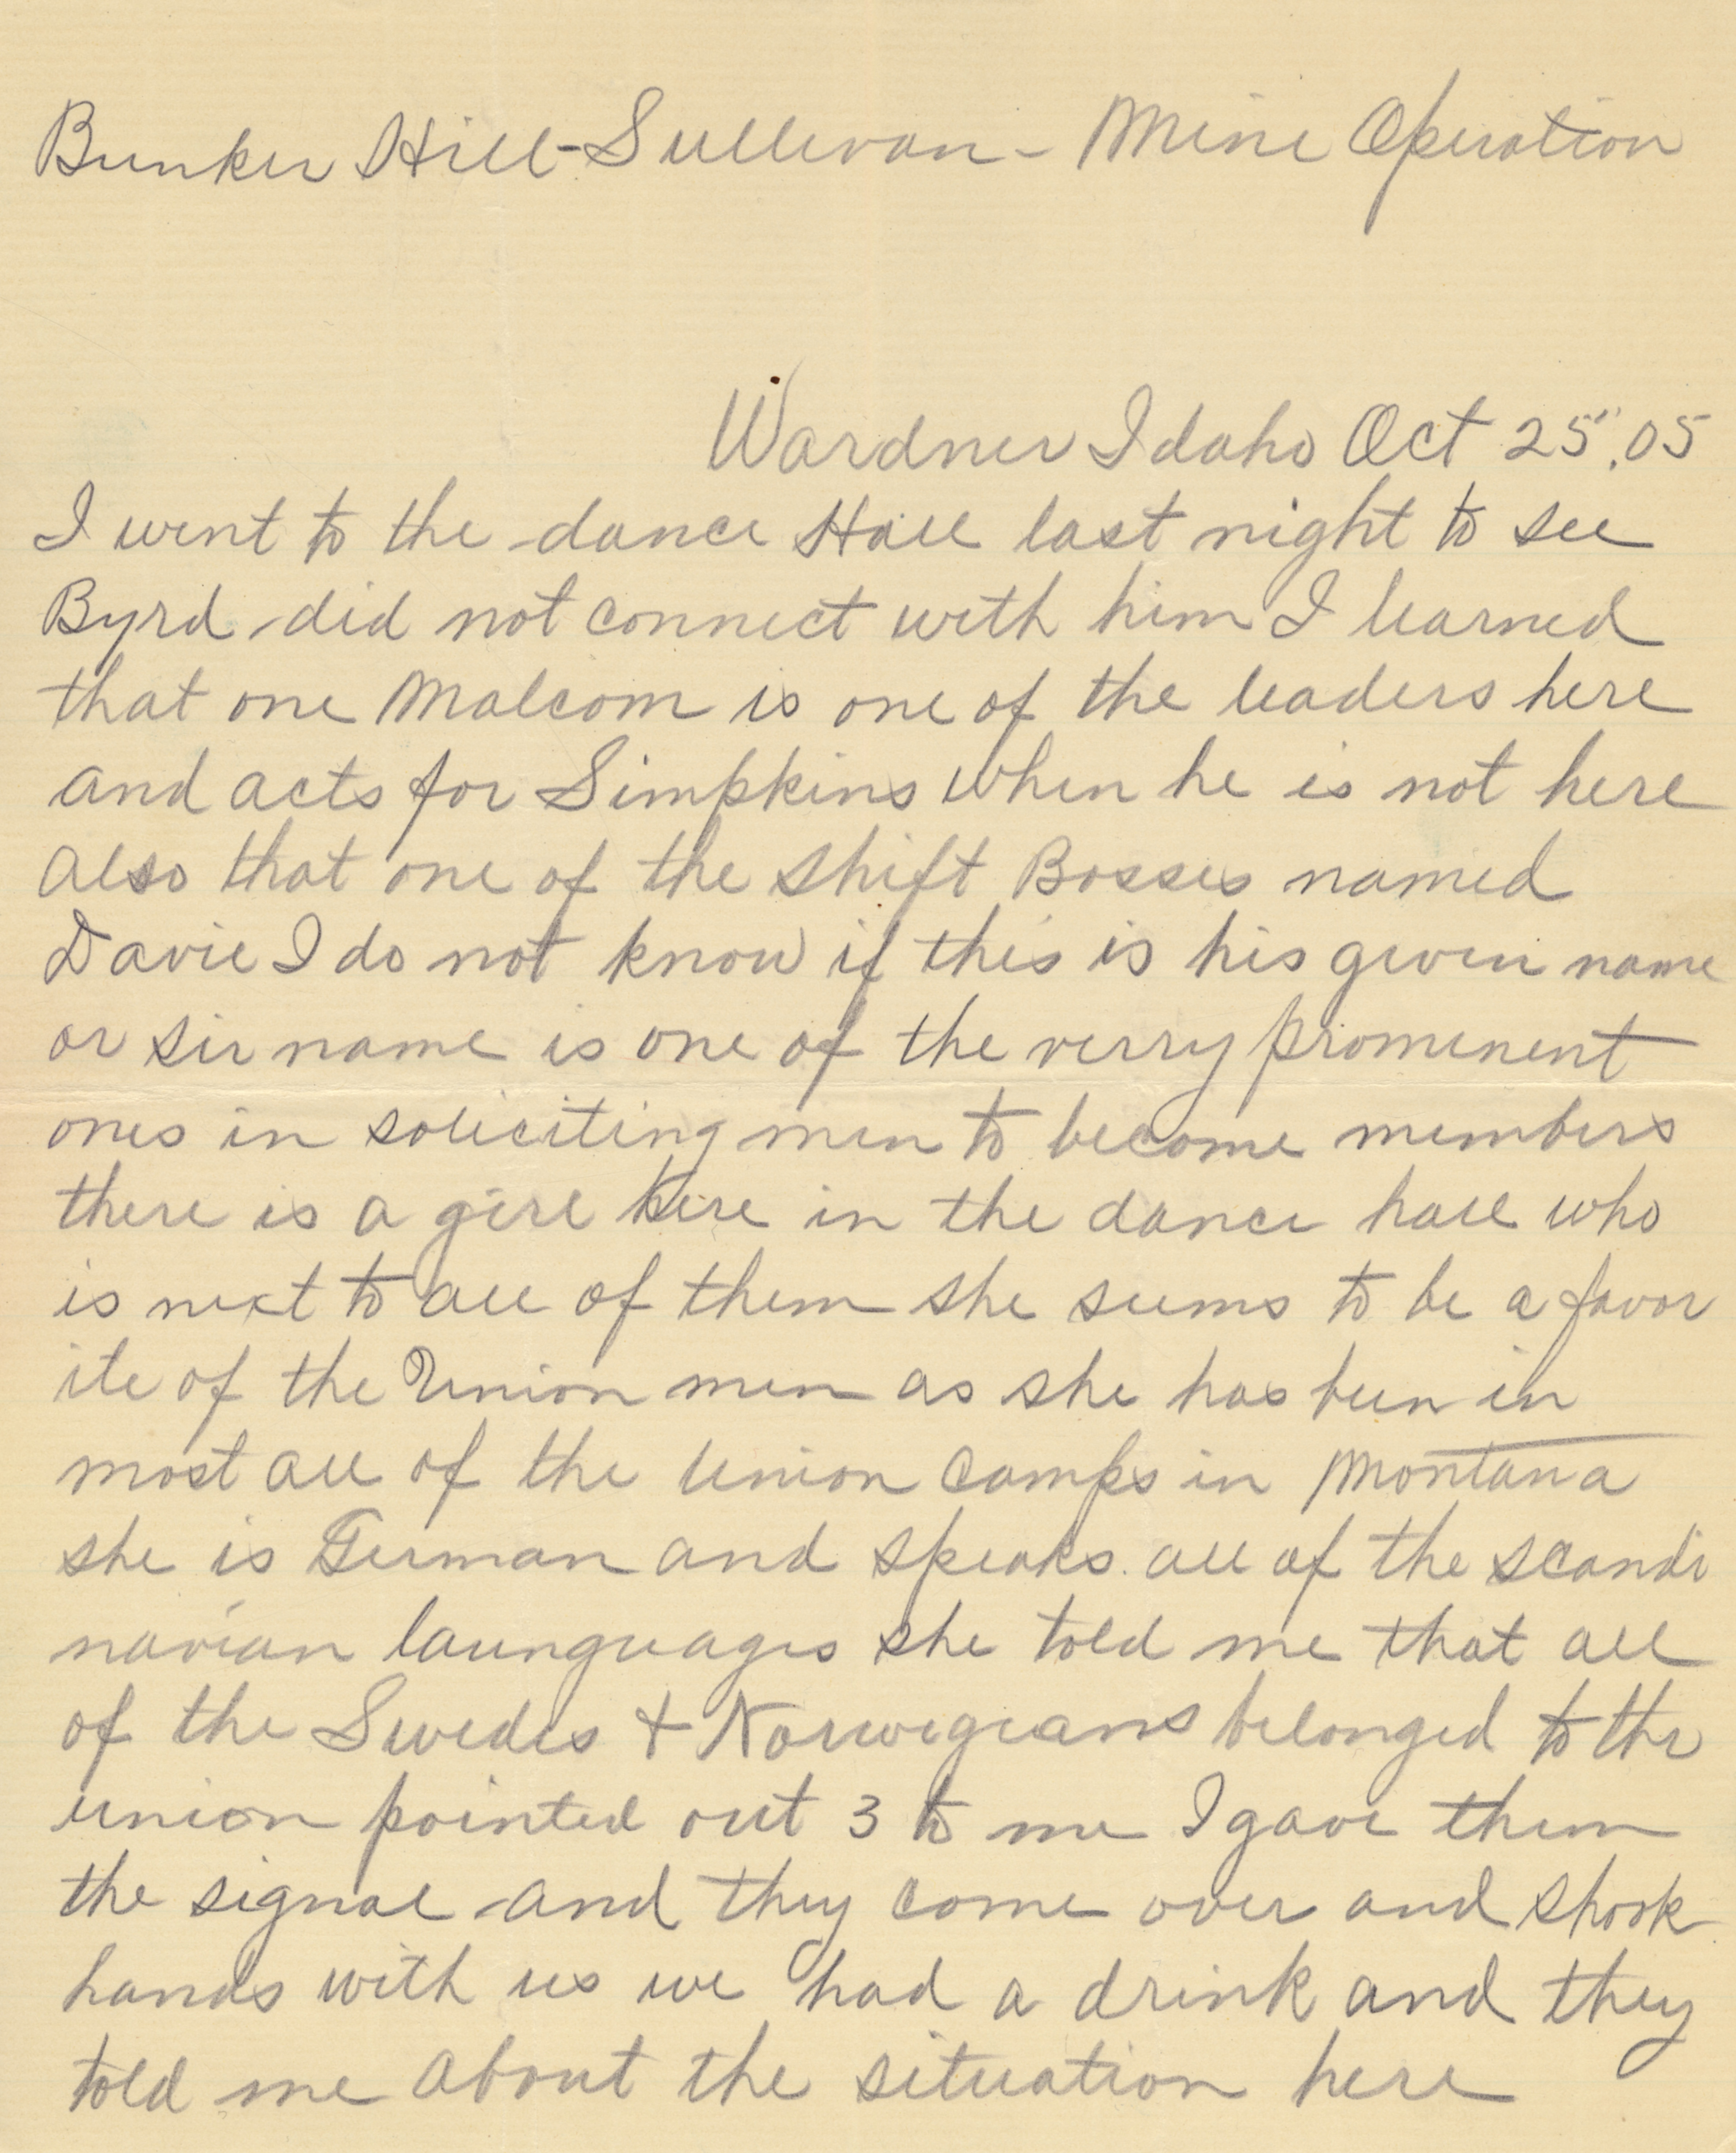 Bunker Hill-Sullivan - Mine Operation
Wardner Idaho Oct 25", 05
I went to the dance Hall last night to see
Byrd did not connect with him I learned
that one Malcom is one of the leaders here
and acts for Simpkins when he is not here
Also that one of the shift Bosses named
Davie I do not know if this is his given name
or sir name is one of the verry prominent
ones in soliciting men to become members
there is a girl here in the dance hall who
is next to all of them she seems to be a favor
ite of the Union men as she has been in
most all of the Union Camps in Montana
she is German and speaks all of the scandi
navian launguages she told me that all
of the Swedes + Norwegians belonged to the
union pointed out 3 to me I gave them
the signal and they come over and shook
hands with us we had a drink and they
told me about the situation here